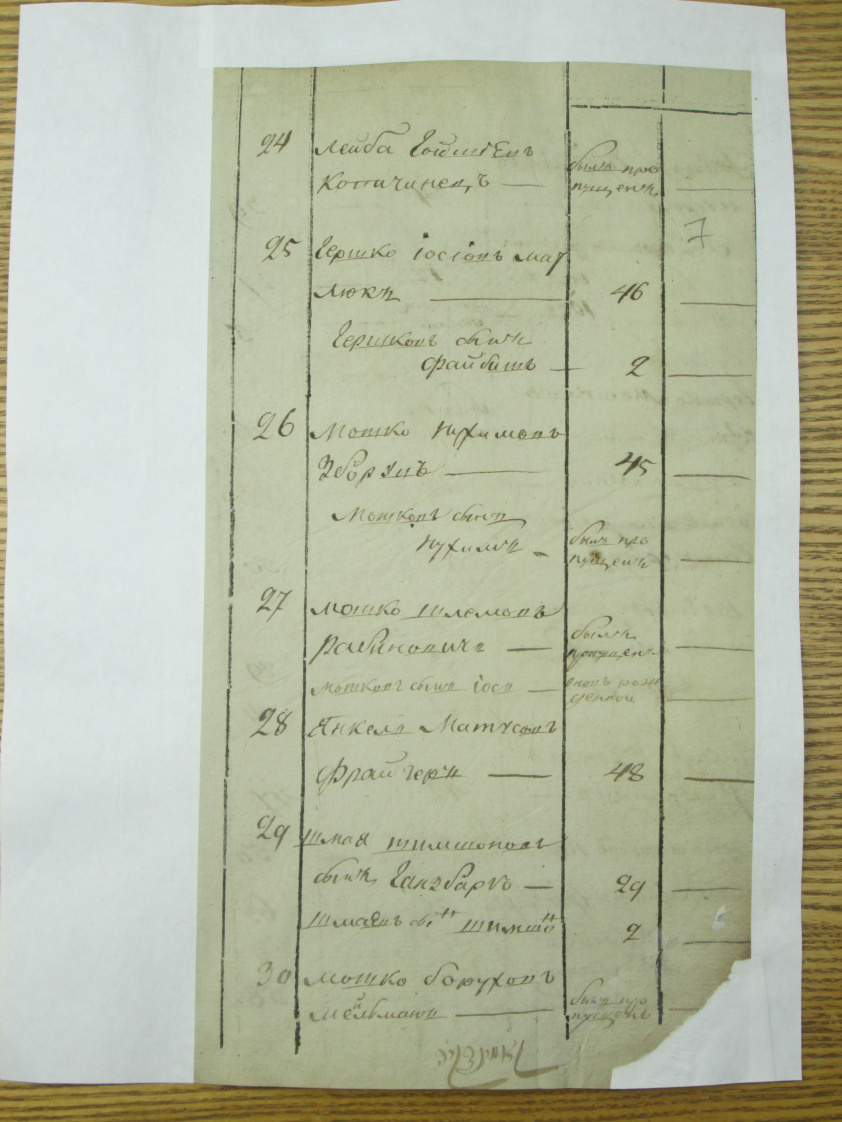 24 Лейба
былъ про
Копичинецъ — пущенъ —
7
25 Гершко Іосіовъ Мат
люкъ — 46 —
Гершковъ сынъ
Файбишъ — 2 —
26 Мошко Нухимовъ
Зборунъ — 45 —
Мошковъ сынъ
былъ про
Нухимъ — пущенъ —
27 Мошко Шлемовъ
былъ
Рабиновичъ — пропущенъ —
Мошковъ сынъ Іосъ — вновь рож
денной —
28 Янкель Матусовъ
Фрайгеръ — 48 —
29 Шмая Шимшоновъ
сынъ Ганзбаргъ — 29 —
Шмаевъ сынъ Шимшонъ 2 —
30 Мошко Боруховъ
былъ про
Мейльманъ — пущенъ —